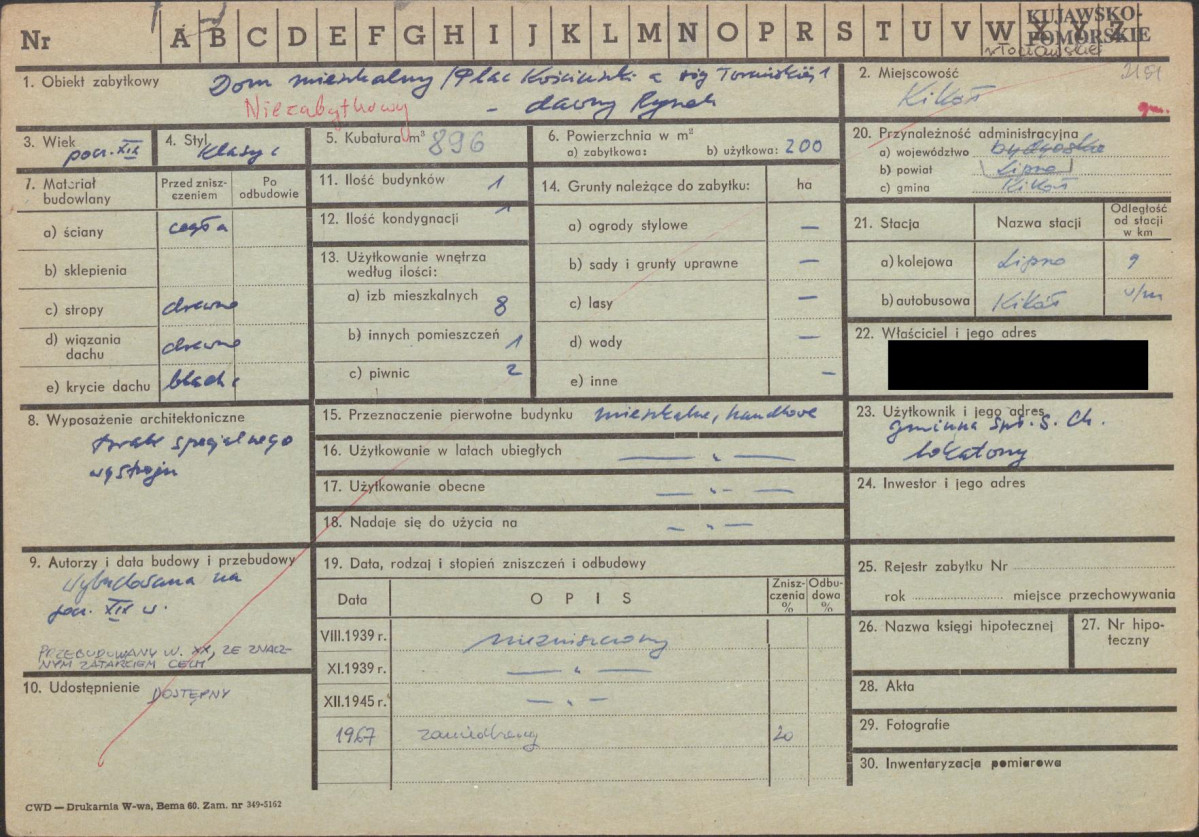 Nr A B C D E F G H I J K L M N O P R S T U V W X Y Z
KUJAWSKO-
POMORSKIE
włocławskie
1. Obiekt zabytkowy Dom mieszkalny /Plac Kościuszki a róg Toruńskiej 1
Niezabytkowy - dawny Rynek
2. Miejscowość
Kikół
gm.
3. Wiek
pocz. XIX
4. Styl
klasyc
5. Kubatura m³ 896
6. Powierzchnia w m²
a) zabytkowa: b) użytkowa: 200
20. Przynależność administracyjna
a) województwo bydgoskie
b) powiat Lipno
c) gmina Kikół
7. Materiał budowlany
Przed zniszczeniem
Po odbudowie
a) ściany cegła
b) sklepienia
c) stropy drewno
d) wiązania dachu drewno
e) krycie dachu blacha
11. Ilość budynków 1
12. Ilość kondygnacji 1
13. Użytkowanie wnętrza
według ilości:
a) izb mieszkalnych 8
b) innych pomieszczeń 1
c) piwnic 2
14. Grunty należące do zabytku: ha
a) ogrody stylowe —
b) sady i grunty uprawne —
c) lasy —
d) wody —
e) inne —
21. Stacja Nazwa stacji Odległość od stacji w km
a) kolejowa Lipno 9
b) autobusowa Kikół w/m
22. Właściciel i jego adres
8. Wyposażenie architektoniczne
brak specjalnego
wystroju
15. Przeznaczenie pierwotne budynku mieszkalne, handlowe
16. Użytkowanie w latach ubiegłych — „ —
17. Użytkowanie obecne — „ —
18. Nadaje się do użycia na — „ —
23. Użytkownik i jego adres
gminna Spł. S. Ch.
lokatorzy
24. Inwestor i jego adres
9. Autorzy i data budowy i przebudowy
wybudowana na
pocz. XIX w.
PRZEBUDOWANY W. XX, ZE ZNACZ-
NYM ZATARCIEM CECH
10. Udostępnienie DOSTĘPNY
19. Data, rodzaj i stopień zniszczeń i odbudowy
Data OPIS Zniszczenia % Odbudowa %
VIII.1939 r. niezniszczony
XI.1939 r. — „ —
XII.1945 r. — „ —
1967 zaniedbany 20
25. Rejestr zabytku Nr
rok miejsce przechowywania
26. Nazwa księgi hipotecznej
27. Nr hipo-
teczny
28. Akta
29. Fotografie
30. Inwentaryzacja pomiarowa
CWD — Drukarnia W-wa, Bema 60. Zam. nr 349-5162